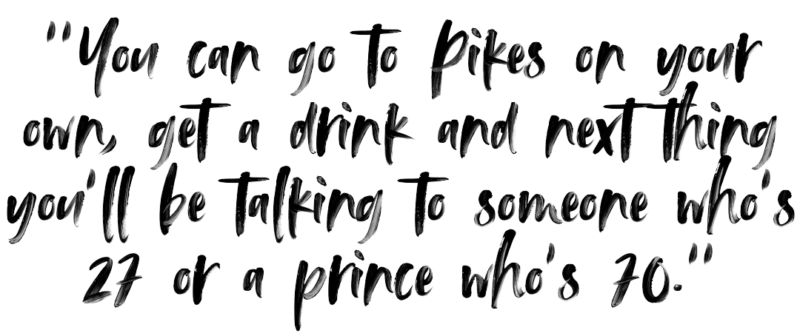 "You can go to Pikes on your
own, get a drink and next thing
you'll be talking to someone who's
27 or a prince who's 70."